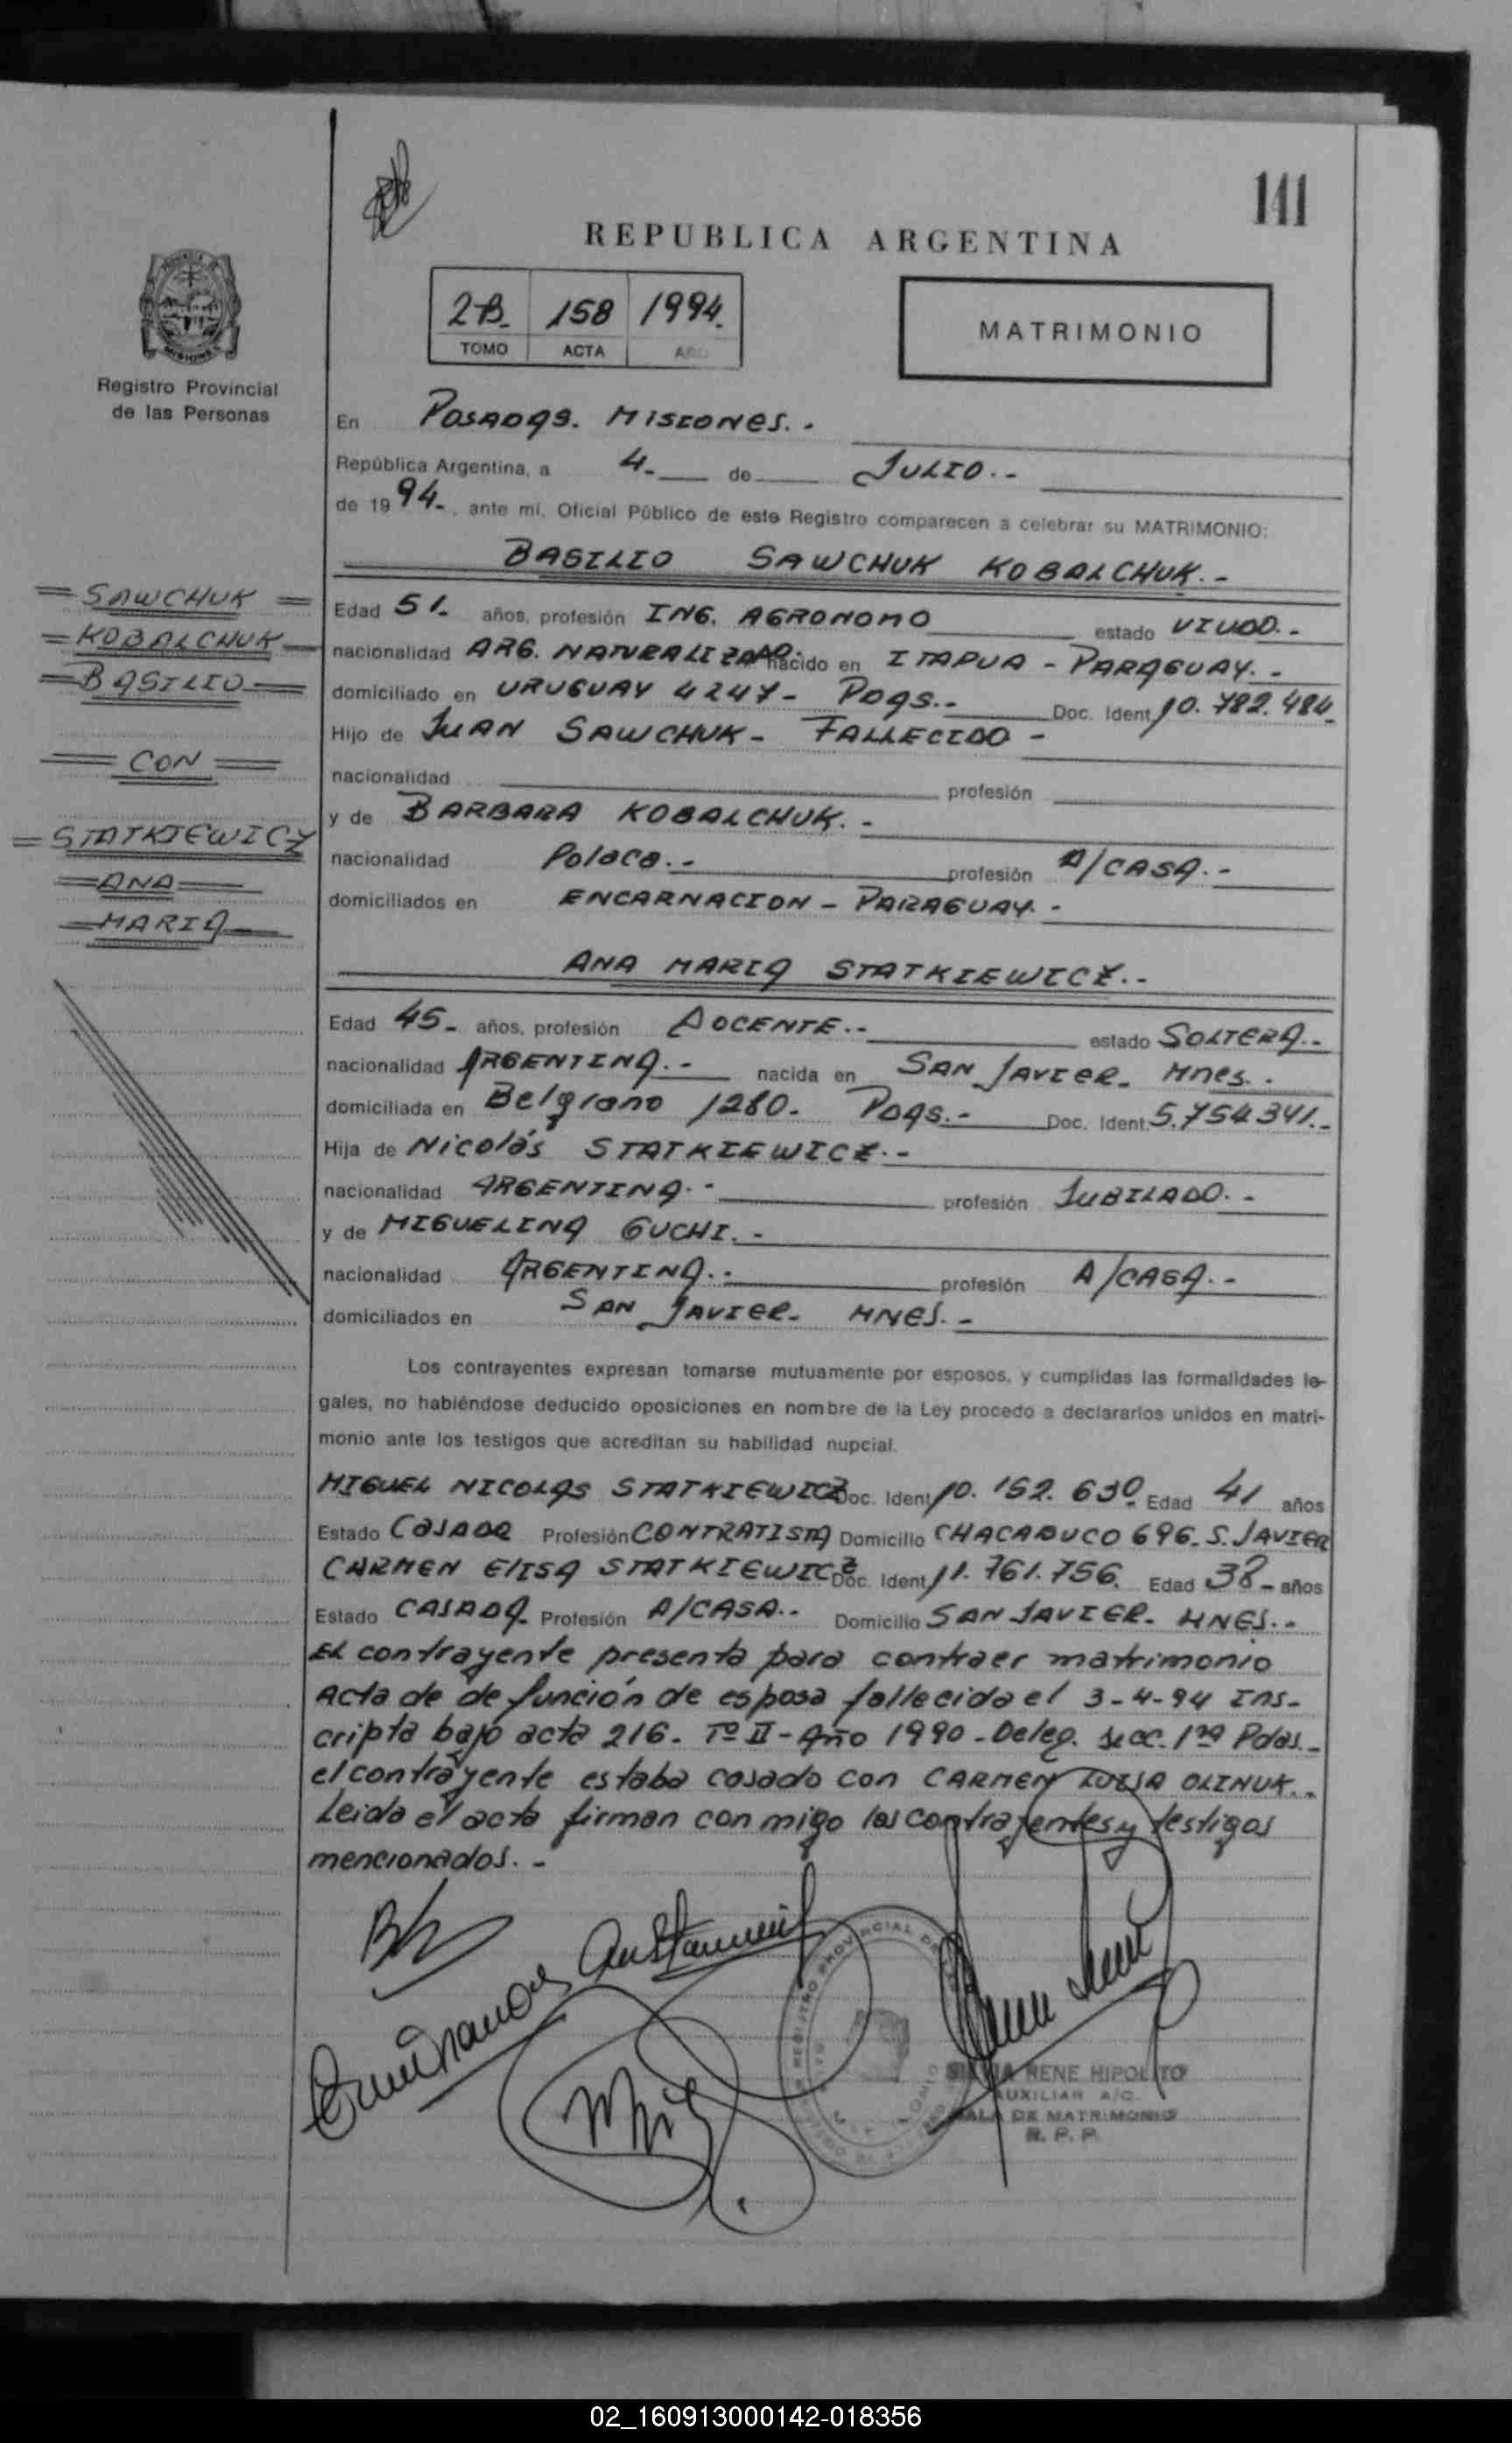 141
REPUBLICA ARGENTINA
2B. 158 1994.
TOMO ACTA AÑO
MATRIMONIO
Registro Provincial
de las Personas
SAWCHUK
KOBALCHUK
BASILIO
CON
STATKIEWICZ
ANA
MARIA
En POSADAS. MISIONES.-
República Argentina, a 4.- de JULIO.-
de 1994-, ante mí, Oficial Público de este Registro comparecen a celebrar su MATRIMONIO:
BASILIO SAWCHUK KOBALCHUK.-
Edad 51- años, profesión ING. AGRONOMO estado VIUDO.-
nacionalidad ARG. NATURALIZADO nacido en ITAPUA - PARAGUAY.-
domiciliado en URUGUAY 4247- Pdas.- Doc. Ident. 10.782.484
Hijo de JUAN SAWCHUK - FALLECIDO -
nacionalidad profesión
y de BARBARA KOBALCHUK.-
nacionalidad Polaca.- profesión A/CASA.-
domiciliados en ENCARNACION - PARAGUAY.-
ANA MARIA STATKIEWICZ.-
Edad 45- años, profesión DOCENTE.- estado SOLTERA.-
nacionalidad ARGENTINA.- nacida en SAN JAVIER- Mnes..
domiciliada en Belgrano 1280. Pdas.- Doc. Ident. 5.754.341.-
Hija de Nicolás STATKIEWICZ.-
nacionalidad ARGENTINA.- profesión JUBILADO.-
y de MIGUELINA GUCHI.-
nacionalidad ARGENTINA.- profesión A/CASA.-
domiciliados en SAN JAVIER- MNES.-
Los contrayentes expresan tomarse mutuamente por esposos, y cumplidas las formalidades le-
gales, no habiéndose deducido oposiciones en nombre de la Ley procedo a declararlos unidos en matri-
monio ante los testigos que acreditan su habilidad nupcial.
MIGUEL NICOLAS STATKIEWICZ Doc. Ident. 10.152.630 Edad 41 años
Estado CASADO Profesión CONTRATISTA Domicilio CHACABUCO 696. S. JAVIER
CARMEN ELISA STATKIEWICZ Doc. Ident. 11.761.756. Edad 38- años
Estado CASADA Profesión A/CASA.. Domicilio SAN JAVIER- MNES..
El contrayente presenta para contraer matrimonio
Acta de de función de esposa fallecida el 3-4-94 Ins-
cripta bajo acta 216. Tº II - Año 1990 - Deleg. secc. 1ra Pdas.-
el contrayente estaba casado con CARMEN LUISA OLINUK..
Leida el acta firman con migo los contrayentes y testigos
mencionados.-
RENE HIPOLITO
AUXILIAR A/C.
SALA DE MATRIMONIO
R. P. P.
02_160913000142-018356